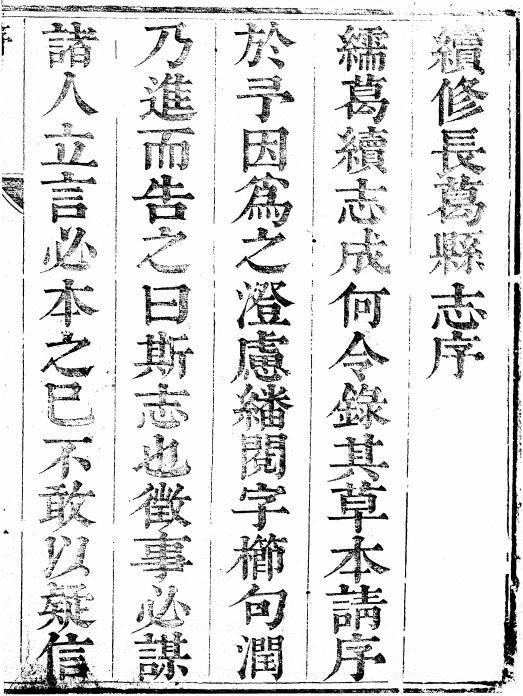 續修長葛縣志序
繻葛續志成何令錄其草本請序
於予因爲之澄慮繙閱字櫛句潤
乃進而告之曰斯志也徵事必謀
諸人立言必本之已不敢以疑信